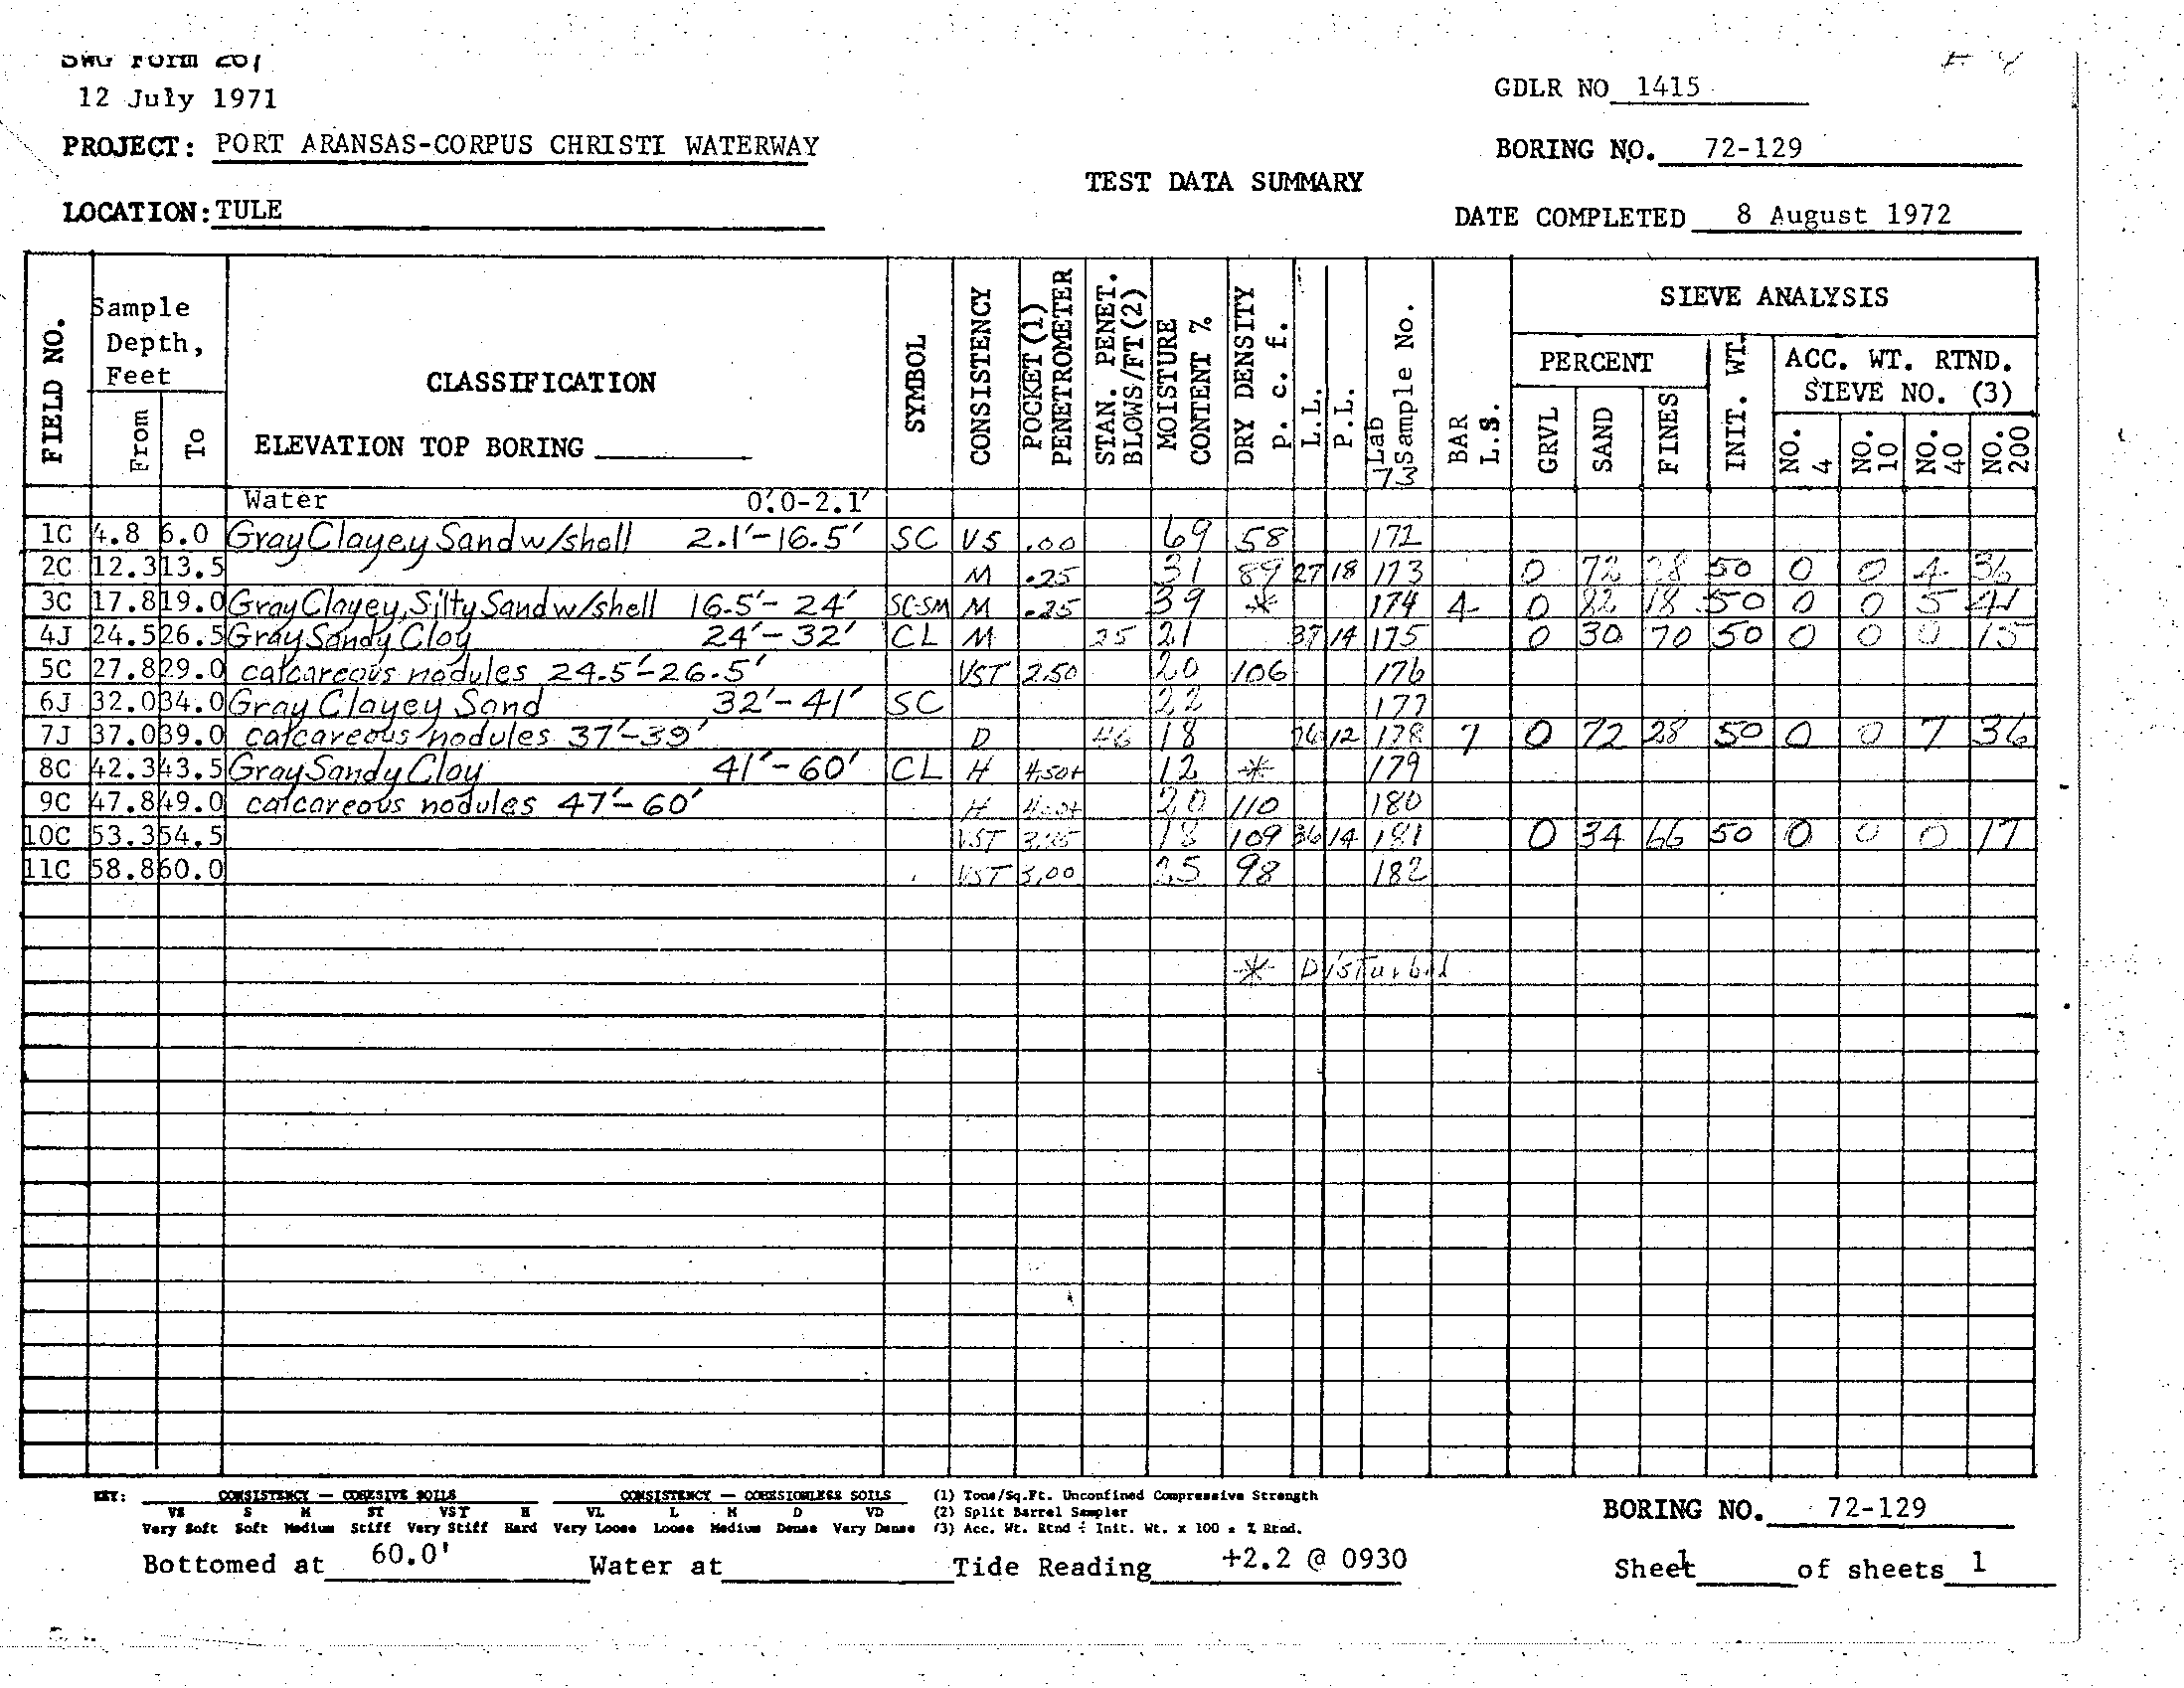 SWG Form 267
12 July 1971
GDLR NO 1415
PROJECT: PORT ARANSAS-CORPUS CHRISTI WATERWAY
BORING NO. 72-129
TEST DATA SUMMARY
LOCATION: TULE
DATE COMPLETED 8 August 1972
FIELD NO.
Sample Depth, Feet
From
To
CLASSIFICATION
ELEVATION TOP BORING
SYMBOL
CONSISTENCY
POCKET (1) PENETROMETER
STAN. PENET. BLOWS/FT (2)
MOISTURE CONTENT %
DRY DENSITY p. c. f.
L.L.
P.L.
Lab Sample No.
73
BAR L.S.
SIEVE ANALYSIS
PERCENT
GRVL
SAND
FINES
INIT. WT.
ACC. WT. RTND.
SIEVE NO. (3)
NO. 4
NO. 10
NO. 40
NO. 200
Water 0.0-2.1'
1C 4.8 6.0 Gray Clayey Sand w/shell 2.1'-16.5' SC VS .00 69 58 172
2C 12.3 13.5 M .25 31 89 27 18 173 0 72 28 50 0 0 4 36
3C 17.8 19.0 Gray Clayey, Silty Sand w/shell 16.5'- 24' SC-SM M .25 39 * 174 4 0 82 18 50 0 0 5 41
4J 24.5 26.5 Gray Sandy Clay 24'- 32' CL M 25 21 37 14 175 0 30 70 50 0 0 0 15
5C 27.8 29.0 calcareous nodules 24.5'-26.5' VST 2.50 20 106 176
6J 32.0 34.0 Gray Clayey Sand 32'- 41' SC 22 177
7J 37.0 39.0 calcareous nodules 37'-39' D 46 18 26 12 178 7 0 72 28 50 0 0 7 36
8C 42.3 43.5 Gray Sandy Clay 41'- 60' CL H 4.50+ 12 * 179
9C 47.8 49.0 calcareous nodules 47'- 60' H 20 110 180
10C 53.3 54.5 VST 3.25 18 109 36 14 181 0 34 66 50 0 0 0 17
11C 58.8 60.0 VST 3.00 25 98 182
* Disturbed
KEY: CONSISTENCY — COHESIVE SOILS CONSISTENCY — COHESIONLESS SOILS (1) Tons/Sq.Ft. Unconfined Compressive Strength
VS S M ST VST H VL L M D VD (2) Split Barrel Sampler
Very Soft Soft Medium Stiff Very Stiff Hard Very Loose Loose Medium Dense Very Dense (3) Acc. Wt. Rtnd ÷ Init. Wt. x 100 = % Rtnd.
BORING NO. 72-129
Bottomed at 60.0' Water at Tide Reading +2.2 @ 0930
Sheet 1 of sheets 1